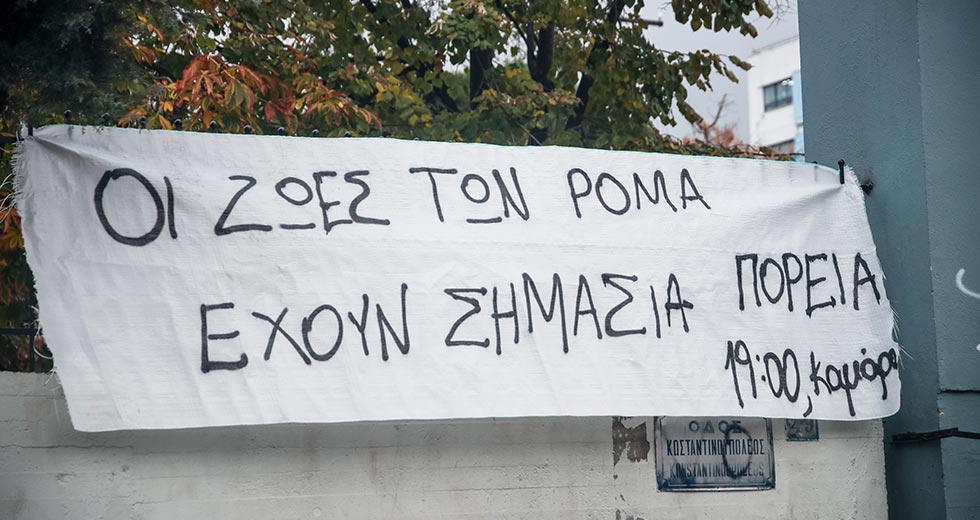 ΟΙ ΖΩΕΣ ΤΩΝ ΡΟΜΑ
ΕΧΟΥΝ ΣΗΜΑΣΙΑ
ΠΟΡΕΙΑ
19:00, Καμάρα
ΟΔΟΣ
ΚΩΣΤΑΝΤΙΝΟΥΠΟΛΕΩΣ
KONSTANTINOUPOLEOS